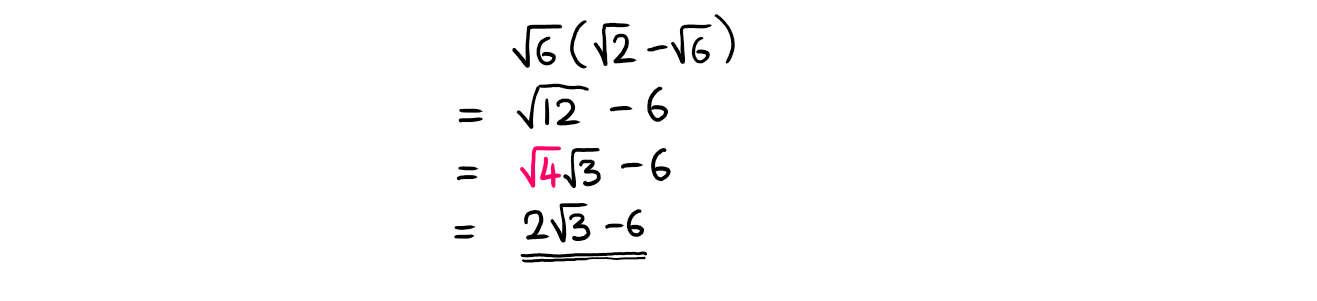 √6(√2 - √6)
= √12 - 6
= √4√3 - 6
= 2√3 - 6